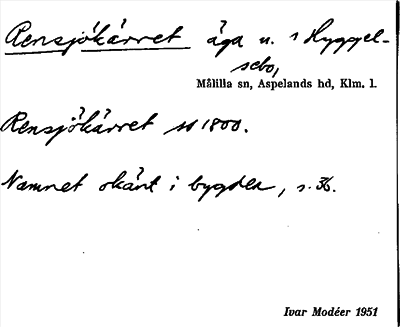 Rensjökärret äga u. s Hyggel-
sebo,
Målilla sn, Aspelands hd, Klm. l.
Rensjökärret so 1800.
Namnet okänt i bygden, s. 36.
Ivar Modéer 1951